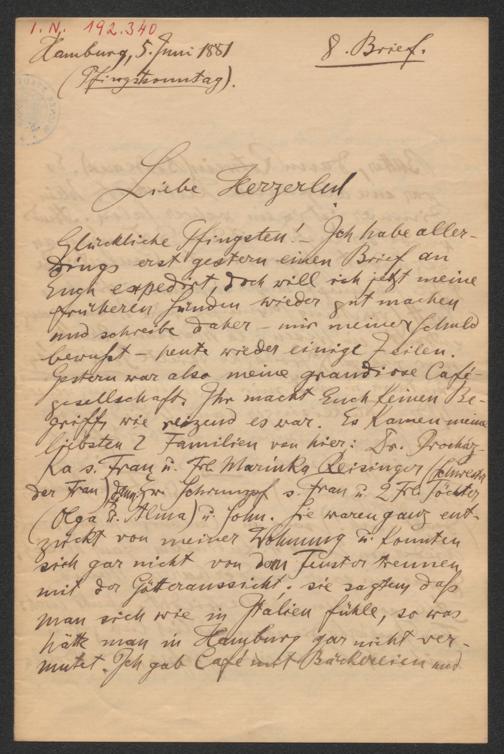 I. N. 192.340
Hamburg, 5. Juni 1881
8. Brief.
(Pfingstsonntag).
Liebe Herzerln!
Glückliche Pfingsten! – Ich habe aller-
dings erst gestern einen Brief an
Euch expedirt, doch will ich jetzt meine
früheren Sünden wieder gut machen
und schreibe daher – mir meiner Schuld
bewußt – heute wieder einige Zeilen.
Gestern war also meine grandiose Café-
gesellschaft. Ihr macht Euch keinen Be-
griff, wie reizend es war. Es kamen meine
liebsten 2 Familien von hier: Dr. Prochaz-
ka s. Frau u. Frl. Marinka Reisinger (Schwester
der Frau) dann Schrumpf s. Frau u. 2 Frl. Töchter
(Olga u. Alma) u. Sohn. Sie waren ganz ent-
zückt von meiner Wohnung u. konnten
sich gar nicht von dem Fenster trennen
mit der Götteraussicht. Sie sagten daß
man sich wie in Italien fühle, so was
hätte man in Hamburg gar nicht ver-
mutet. Ich gab Café mit Bäckereien und